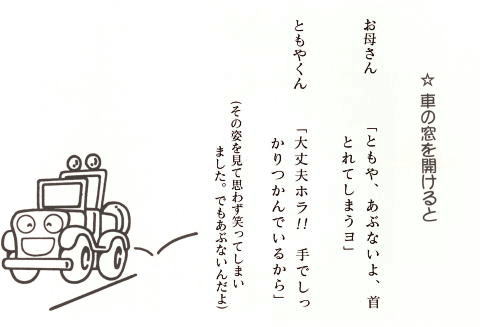 ☆ 車の窓を開けると
お母さん 「ともや、あぶないよ、首
とれてしまうヨ」
ともやくん 「大丈夫ホラ!! 手でしっ
かりつかんでいるから」
(その姿を見て思わず笑ってしまい
ました。でもあぶないんだよ)